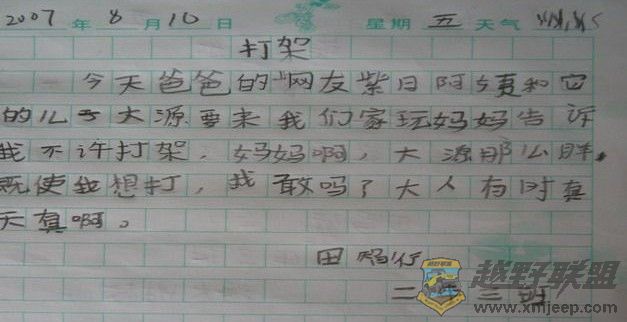 2007年8月10日 星期五 天气
打架
今天爸爸的"网友紫日阿姨和它
的儿子大源要来我们家玩妈妈告诉
我不许打架，妈妈啊，大源那么胖，
既使我想打，我敢吗？大人有时真
天真啊。
田
二年三班
越野联盟
www.xmjeep.com